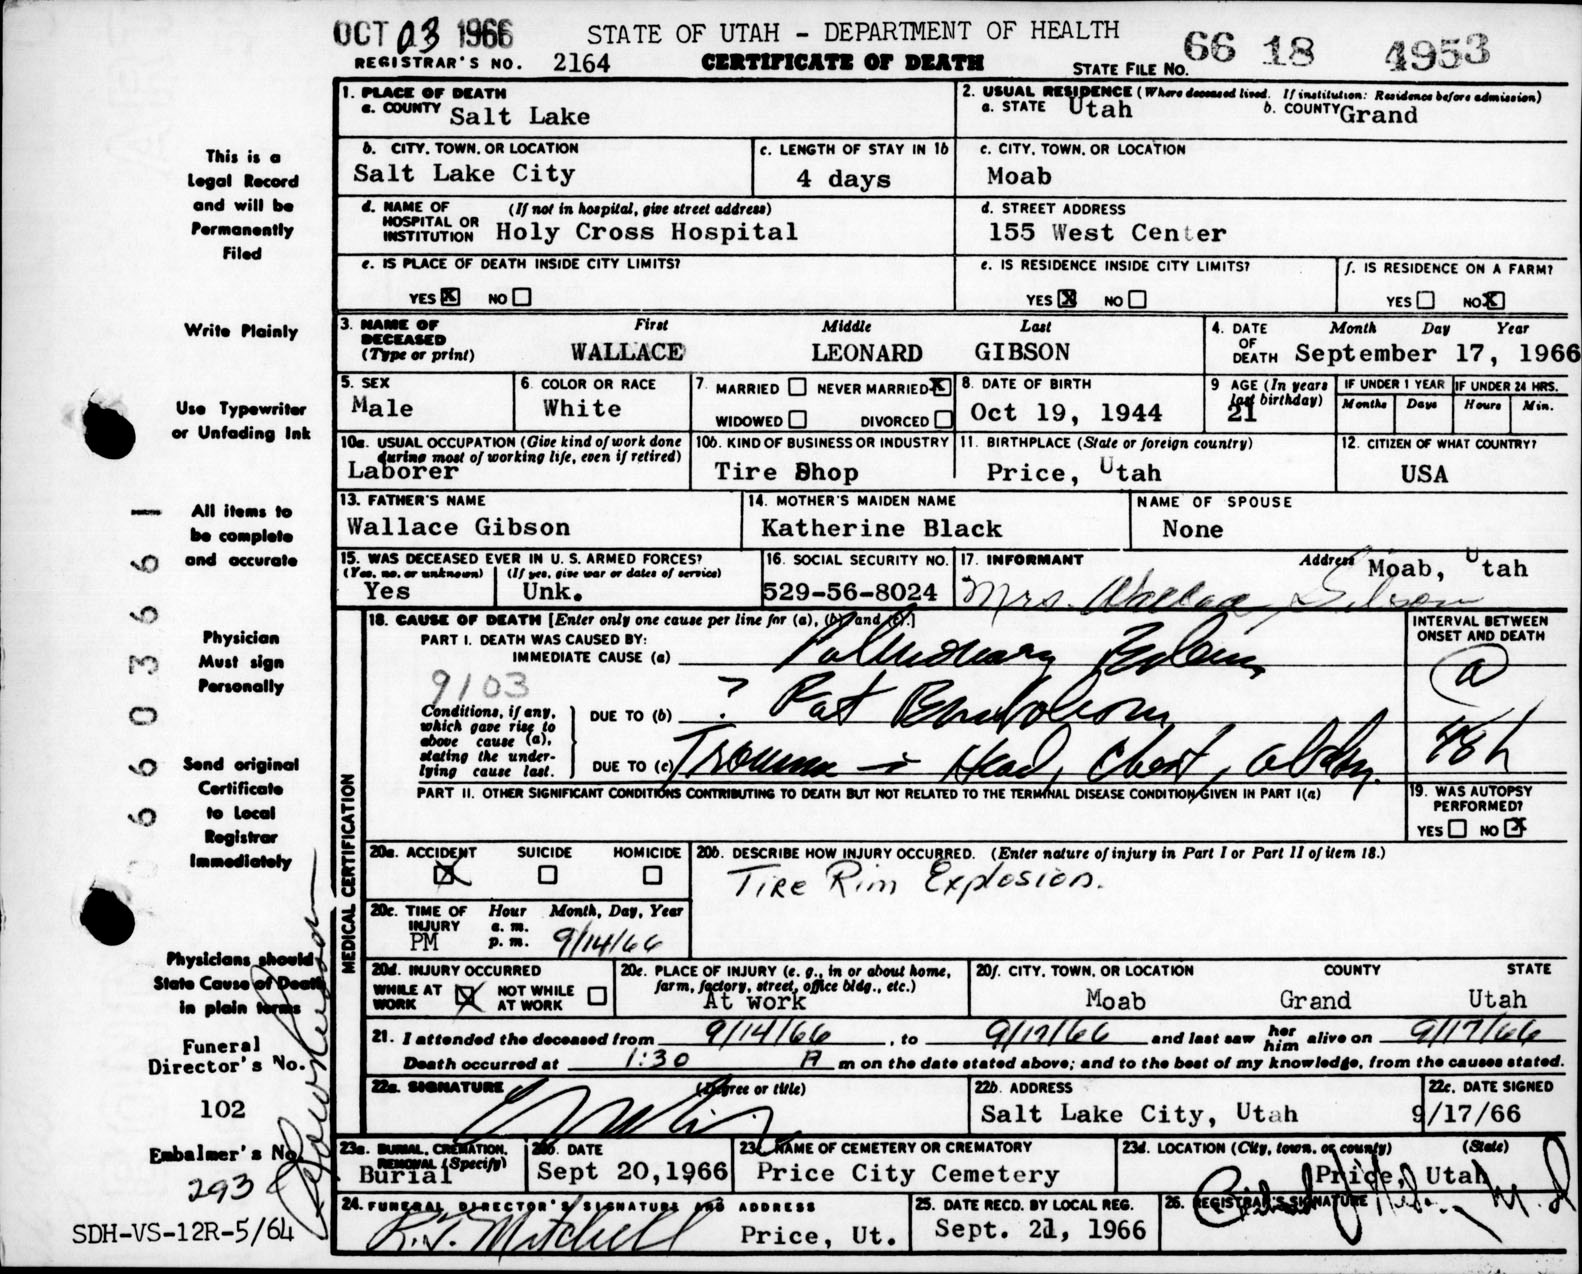 OCT 03 1966 STATE OF UTAH - DEPARTMENT OF HEALTH
REGISTRAR'S NO. 2164 CERTIFICATE OF DEATH STATE FILE NO. 66 18 4953
1. PLACE OF DEATH
a. COUNTY Salt Lake
2. USUAL RESIDENCE (Where deceased lived. If institution: Residence before admission)
a. STATE Utah b. COUNTY Grand
b. CITY, TOWN, OR LOCATION
Salt Lake City
c. LENGTH OF STAY IN 1b
4 days
c. CITY, TOWN, OR LOCATION
Moab
d. NAME OF HOSPITAL OR INSTITUTION (If not in hospital, give street address)
Holy Cross Hospital
d. STREET ADDRESS
155 West Center
e. IS PLACE OF DEATH INSIDE CITY LIMITS?
YES X NO
e. IS RESIDENCE INSIDE CITY LIMITS?
YES X NO
f. IS RESIDENCE ON A FARM?
YES NO X
3. NAME OF DECEASED (Type or print)
First Middle Last
WALLACE LEONARD GIBSON
4. DATE OF DEATH Month Day Year
September 17, 1966
5. SEX
Male
6. COLOR OR RACE
White
7. MARRIED NEVER MARRIED X
WIDOWED DIVORCED
8. DATE OF BIRTH
Oct 19, 1944
9 AGE (In years last birthday)
21
IF UNDER 1 YEAR IF UNDER 24 HRS.
Months Days Hours Min.
10a. USUAL OCCUPATION (Give kind of work done during most of working life, even if retired)
Laborer
10b. KIND OF BUSINESS OR INDUSTRY
Tire Shop
11. BIRTHPLACE (State or foreign country)
Price, Utah
12. CITIZEN OF WHAT COUNTRY?
USA
13. FATHER'S NAME
Wallace Gibson
14. MOTHER'S MAIDEN NAME
Katherine Black
NAME OF SPOUSE
None
15. WAS DECEASED EVER IN U. S. ARMED FORCES?
(Yes, no, or unknown) (If yes, give war or dates of service)
Yes Unk.
16. SOCIAL SECURITY NO.
529-56-8024
17. INFORMANT Address
Mrs. Wallace Gibson Moab, Utah
18. CAUSE OF DEATH [Enter only one cause per line for (a), (b) and (c).]
INTERVAL BETWEEN ONSET AND DEATH
PART I. DEATH WAS CAUSED BY:
IMMEDIATE CAUSE (a) Pulmonary Edema
9103
Conditions, if any, which gave rise to above cause (a), stating the underlying cause last.
DUE TO (b) ? Fat Embolism
DUE TO (c) Trauma Head, Chest, 48 h
PART II. OTHER SIGNIFICANT CONDITIONS CONTRIBUTING TO DEATH BUT NOT RELATED TO THE TERMINAL DISEASE CONDITION GIVEN IN PART I(a)
19. WAS AUTOPSY PERFORMED?
YES NO X
MEDICAL CERTIFICATION
20a. ACCIDENT X SUICIDE HOMICIDE
20b. DESCRIBE HOW INJURY OCCURRED. (Enter nature of injury in Part I or Part II of item 18.)
Tire Rim Explosion.
20c. TIME OF INJURY Hour Month, Day, Year
a. m.
PM p. m. 9/14/66
20d. INJURY OCCURRED
WHILE AT WORK X NOT WHILE AT WORK
20e. PLACE OF INJURY (e. g., in or about home, farm, factory, street, office bldg., etc.)
At work
20f. CITY, TOWN, OR LOCATION COUNTY STATE
Moab Grand Utah
21. I attended the deceased from 9/14/66, to 9/17/66 and last saw her him alive on 9/17/66
Death occurred at 1:30 A m on the date stated above; and to the best of my knowledge, from the causes stated.
22a. SIGNATURE (Degree or title)
22b. ADDRESS
Salt Lake City, Utah
22c. DATE SIGNED
9/17/66
23a. BURIAL, CREMATION, REMOVAL (Specify)
Burial
23b. DATE
Sept 20, 1966
23c. NAME OF CEMETERY OR CREMATORY
Price City Cemetery
23d. LOCATION (City, town, or county) (State)
Price, Utah
24. FUNERAL DIRECTOR'S SIGNATURE AND ADDRESS
Mitchell Price, Ut.
25. DATE RECD. BY LOCAL REG.
Sept. 21, 1966
26. REGISTRAR'S SIGNATURE
This is a
Legal Record
and will be
Permanently
Filed
Write Plainly
Use Typewriter
or Unfading Ink
All items to
be complete
and accurate
Physician
Must sign
Personally
Send original
Certificate
to Local
Registrar
Immediately
Physicians should
State Cause of Death
in plain terms
Funeral
Director's No.
102
Embalmer's No.
293
SDH-VS-12R-5/64